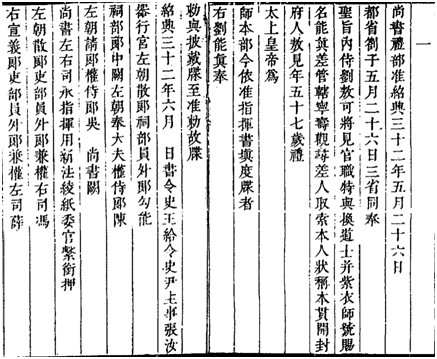 一
尚書禮部准紹興三十二年五月二十六日
都省劄子五月二十六日三省同奉
聖旨內侍劉敖可將見官職特與換道士并紫衣師號賜
名能真差管轄寧壽觀毎差人取索本人狀稱本貫開封
府人敖見年五十七歲禮
太上皇帝爲
師本部令依准指揮書塡度牒者
右劉能真奉
勅與披戴牒至准勅故牒
紹興三十二年六月　日書令史王給令史尹上事張汝
器行官左朝散郎祠部員外郎勾能
祠部郎中闕左朝奉大夫權侍郎陳
左朝請郎權侍郎吳　尚書闕
尚書左右司永指揮用新法綾紙委官繫銜押
左朝散郎吏部員外郎兼權右司馮
右宣義郎吏部員外郎兼權左司薛